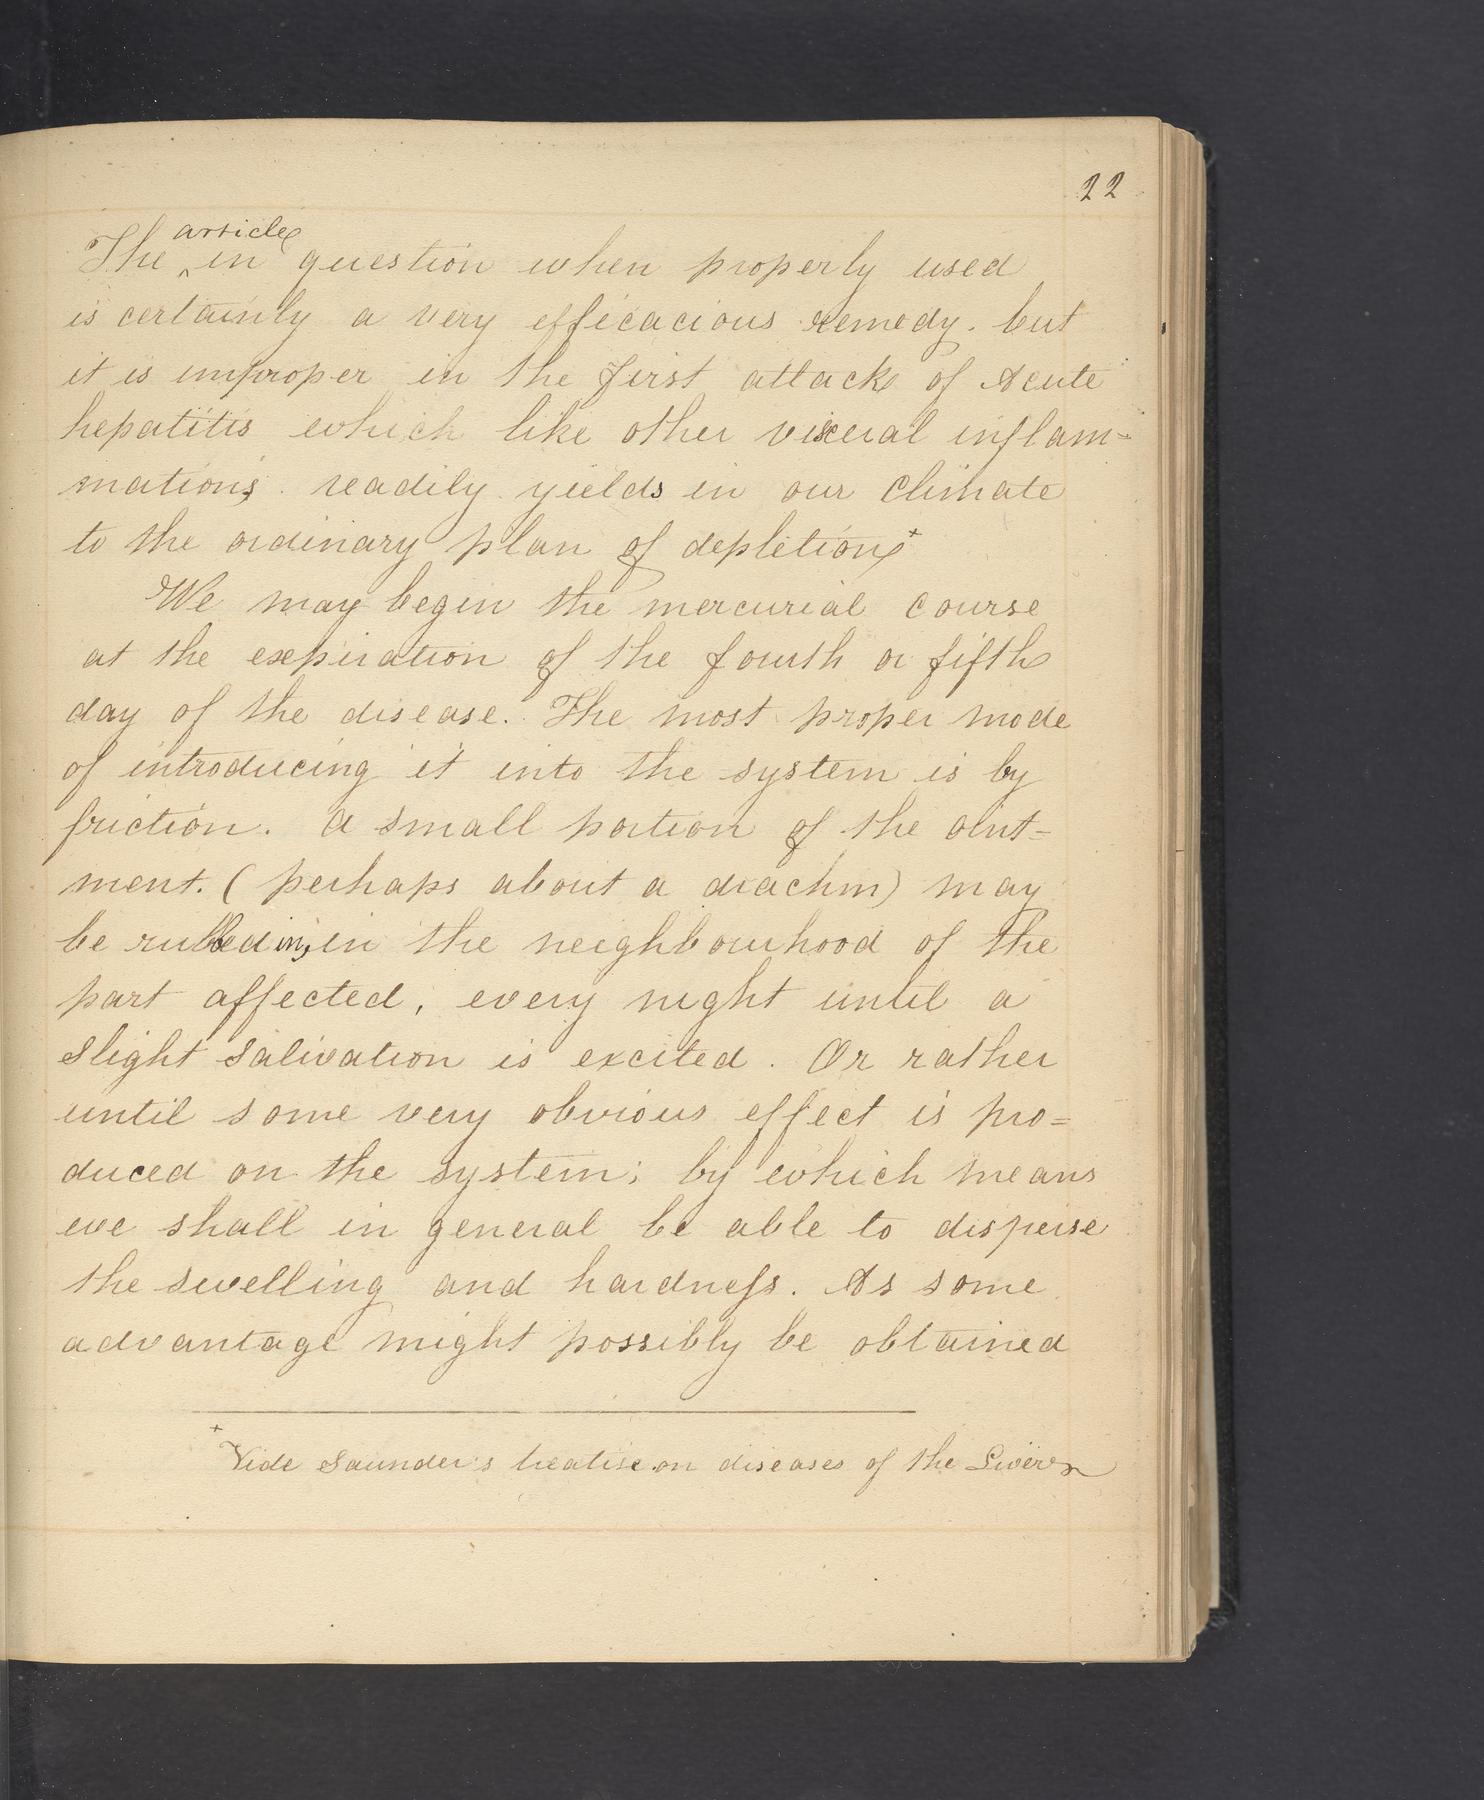 22
The ^article in question when properly used
is certainly a very efficacious remedy. but
it is improper in the first attack of Acute
hepatitis which like other visceral inflam=
mations, readily yields in our climate
to the ordinary plan of depletion+
We may begin the mercurial course
at the expiration of the fourth or fifth
day of the disease. The most proper mode
of introducing it into the system is by
friction. A small portion of the oint=
ment. (perhaps about a drachm) may
be rubbed in, in the neighbourhood of the
part affected, every night until a
slight salivation is excited. Or rather
until some very obvious effect is pro=
duced on the system; by which means
we shall in general be able to disperse
the swelling and hardneſs. As some
advantage might possibly be obtained
+ Vide Saunder's treatise on diseases of the Liver